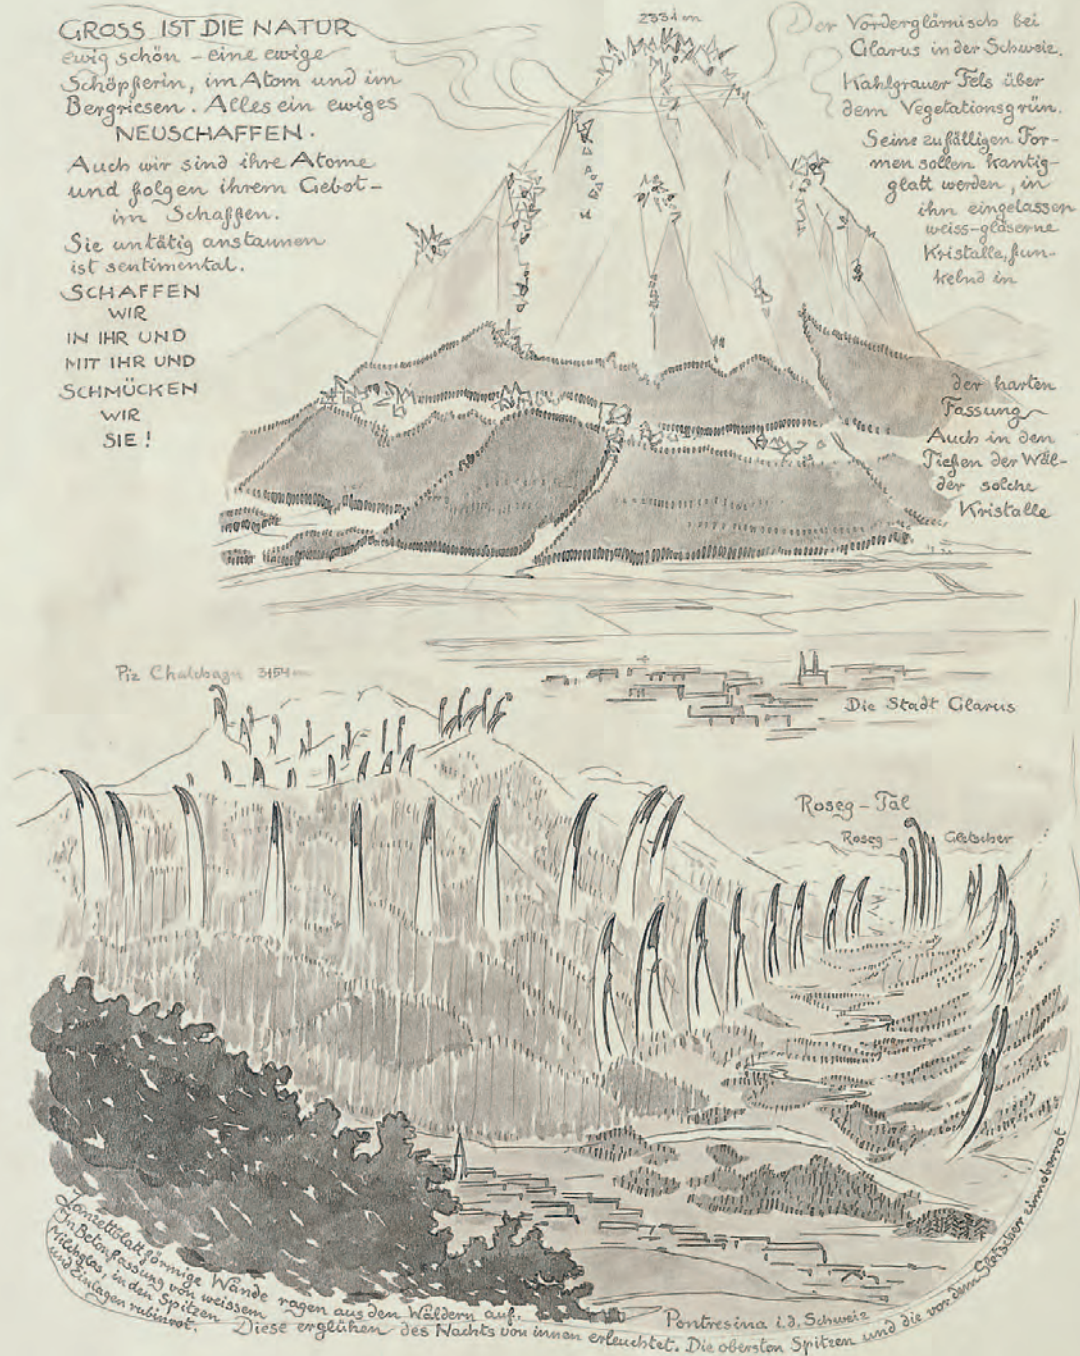 GROSS IST DIE NATUR
ewig schön – eine ewige
Schöpferin, im Atom und im
Bergriesen. Alles ein ewiges
NEUSCHAFFEN.
Auch wir sind ihre Atome
und folgen ihrem Gebot –
im Schaffen.
Sie untätig anstaunen
ist sentimental.
SCHAFFEN
WIR
IN IHR UND
MIT IHR UND
SCHMÜCKEN
WIR
SIE!
2331 m
Der Vorderglärnisch bei
Glarus in der Schweiz.
Kahlgrauer Fels über
dem Vegetationsgrün.
Seine zufälligen For-
men sollen kantig-
glatt werden, in
ihn eingelassen
weiss-gläserne
Kristalle, fun-
kelnd in
der harten
Fassung
Auch in den
Tiefen der Wäl-
der solche
Kristalle
Die Stadt Glarus
Piz 3154 m
Roseg – Tal
Roseg – Gletscher
Lanzettblattförmige Wände ragen aus den Wäldern auf.
In Betonfassung von weissem
Milchglas, in den Spitzen
und Einlagen rubinrot.
Diese erglühen des Nachts von innen erleuchtet. Die obersten Spitzen und die vor dem Gletscher zinnoberrot
Pontresina i.d. Schweiz